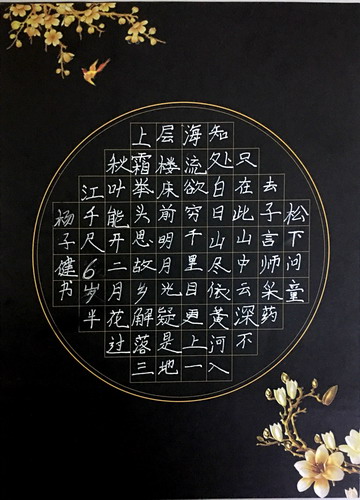 松下问童
去子言师采药
只在此山中云深不
知处白日山尽依黄河入
海流欲穷千里目更上一
层楼床前明月光疑是地
上霜举头思故乡解落三
秋叶能开二月花过
江千尺6岁半
杨子健书